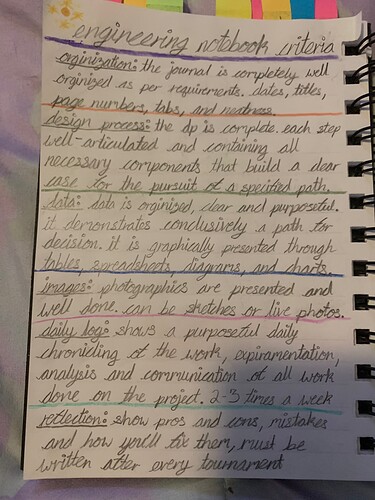 engineering notebook criteria
orginization: the journal is completely well
orginized as per requirements. dates, titles,
page numbers, tabs, and neatness.
design process: the dp is complete. each step
well-articulated and containing all
necessary components that build a clear
case for the pursuit of a specified path.
data: data is orginized, clear and purposeful.
it demonstrates conclusively a path for
decision. it is graphically presented through
tables, spreadsheets, diagrams, and charts.
images: photographics are presented and
well done. can be sketches or live photos.
daily log: shows a purposeful daily
chronicling of the work, expiramentation,
analysis and communication of all work
done on the project. 2-3 times a week
reflection: show pros and cons, mistakes
and how you'll fix them, must be
written after every tournament